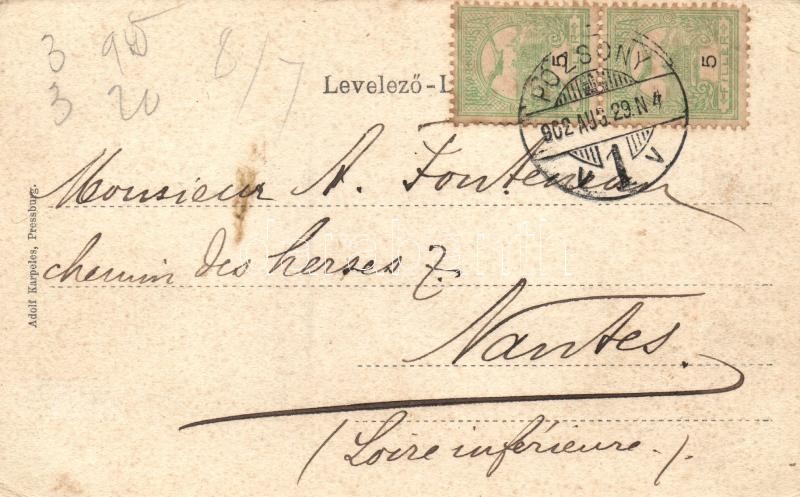 3 90
3 20
8/7
Levelező-L
5
5
FILLÉR
POZSONY
902 AUG. 29. N 4
V 1 V
Monsieur A.
chemin des herses 7.
Nantes.
(Loire inférieure.).
Adolf Karpeles, Pressburg.
darabanth